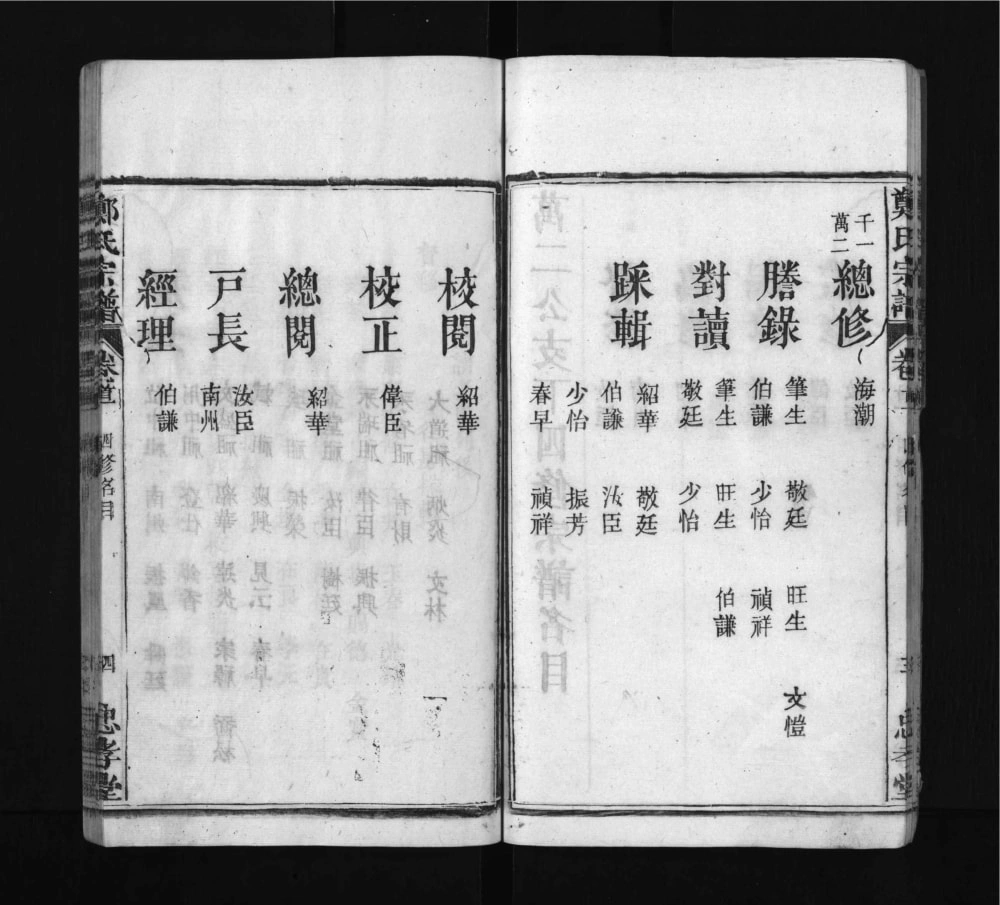 鄭氏宗譜 卷首 三 忠孝堂
千一
萬二
總修 海潮
謄錄 筆生 敬廷 旺生 文愷
伯謙 少怡 禎祥
對讀 筆生 旺生 伯謙
敬廷 少怡
踩輯 紹華 敬廷
伯謙 汝臣
少怡 振芳
春早 禎祥
校閱 紹華
校正 偉臣
總閱 紹華
戶長 汝臣
南州
經理 伯謙
鄭氏宗譜 卷首 四修名目 四 忠孝堂